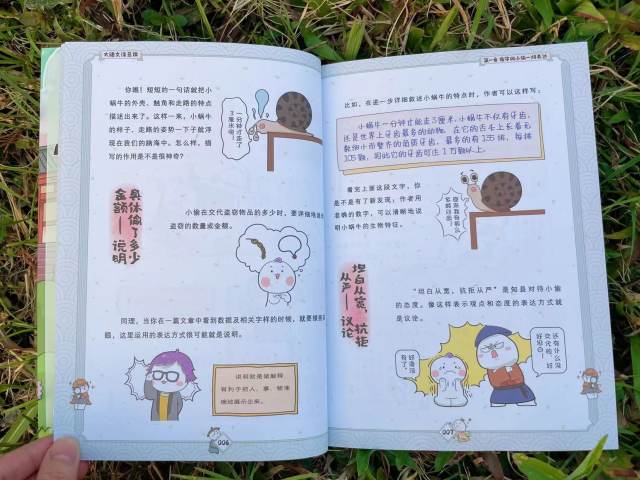 大语文漫画版
你瞧！短短的一句话就把小
蜗牛的外壳、触角和走路的特点
描述出来了。这样一来，小蜗牛
的样子、走路的姿势一下子就浮
现在我们的脑海中。怎么样，描
写的作用是不是很神奇？
一分钟才走了
3厘米呀！
具体偷了多少
金额——说明
小偷在交代盗窃物品的多少时，要详细地说
盗窃的数量或金额。
同理，当你在一篇文章中看到数据及相关字样的时候，就要
题，这里运用的表达方式很可能就是说明。
说明就是做解释，
有利于把人、事、物准
确地展示出来。
006
比如，在进一步详细叙述小蜗牛的特点时，作者可以这样写。
小蜗牛一分钟才能走3厘米。小蜗牛不仅有牙齿，
还是世界上牙齿最多的动物。在它的舌头上长着无
数细小而整齐的角质牙齿，最多的有135排，每排
105颗，因此它的牙齿可达1万颗以上。
看完上面这段文字，你
是不是有了新发现：作者用
准确的数字，可以清晰地说
明小蜗牛的生物特征。
坦白从宽，抗拒
从严——议论
“坦白从宽，抗拒从严”是知县对待小偷
的态度。像这样表示观点和态度的表达方式就
是议论。
还有什么没
交代的，好
好坦白！
好像没
有了。
007